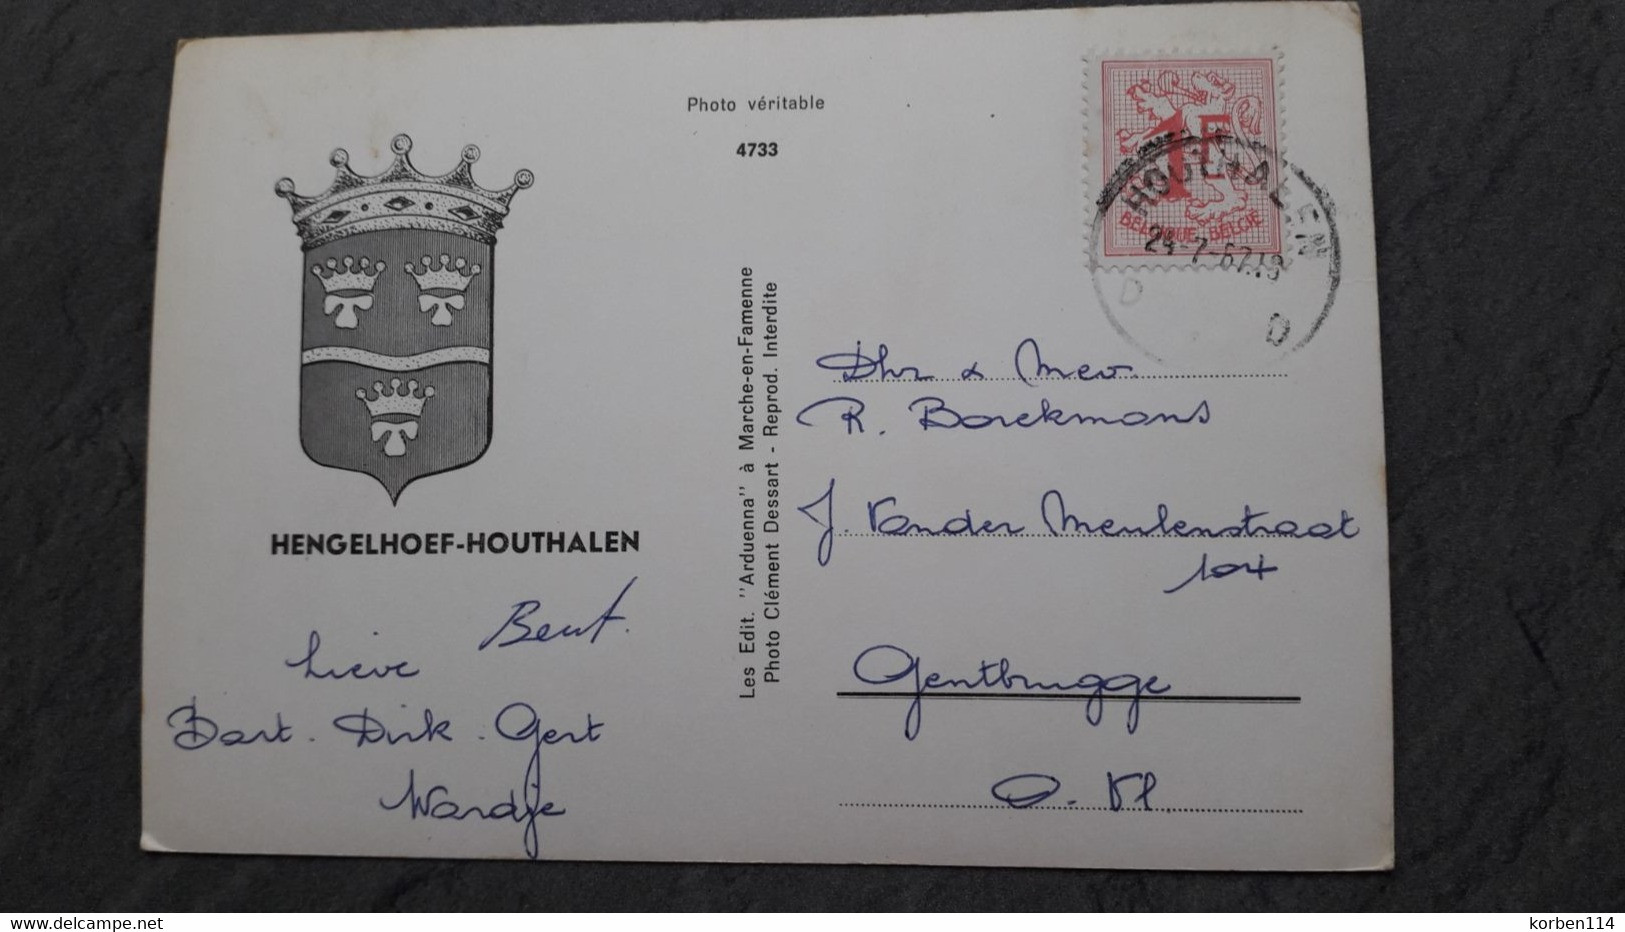 Photo véritable
4733
1F
BELGIQUE BELGIË
HOUTHALEN
24-7-67.18
D D
HENGELHOEF-HOUTHALEN
Les Edit. "Arduenna" à Marche-en-Famenne
Photo Clément Dessart - Reprod. Interdite
Lieve
Bart. Dirk. Gert
Wardje
Dhr & Mev.
R. Borekmans
J. Vander Meulenstraat
104
Gentbrugge
O. Vl.
www.delcampe.net
korben114